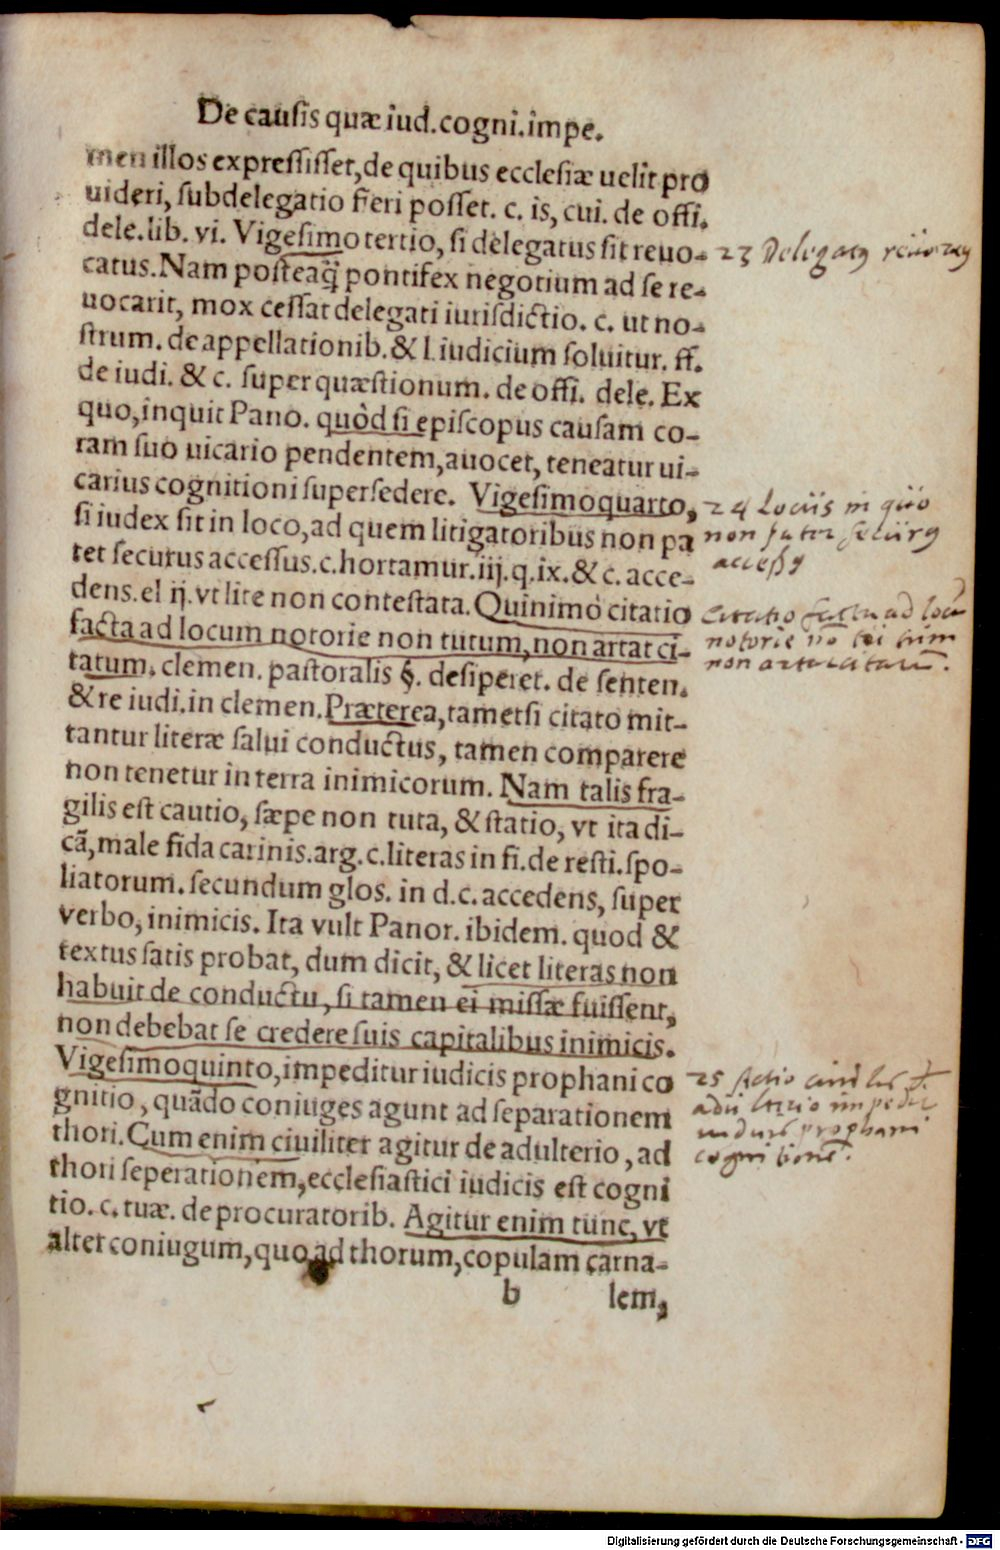 De causis quæ iud.cogni.impe.
men illos expressisset,de quibus ecclesiæ uelit pro
uideri, subdelegatio fieri posset. c. is, cui. de offi.
dele.lib. vi. Vigesimotertio, si delegatus sit reuo-
catus.Nam posteaq̃ pontifex negotium ad se re-
uocarit, mox cessat delegati iurisdictio. c. ut no-
strum. de appellationib.& l.iudicium soluitur. ff.
de iudi. & c. super quæstionum. de offi. dele. Ex
quo,inquit Pano. quòd si episcopus causam co-
ram suo uicario pendentem,auocet, teneatur ui-
carius cognitioni supersedere. Vigesimoquarto,
si iudex sit in loco,ad quem litigatoribus non pa
tet securus accessus.c.hortamur.iij.q.ix.& c. acce-
dens.el ij.vt lite non contestata.Quinimò citatio
facta ad locum notorie non tutum,non artat ci-
tatum. clemen. pastoralis §. desiperet. de senten.
& re iudi.in clemen.Præterea,tametsi citato mit-
tantur literæ salui conductus, tamen comparere
non tenetur in terra inimicorum. Nam talis fra-
gilis est cautio, sæpe non tuta, & statio, vt ita di-
cã,male fida carinis.arg.c.literas in fi.de resti.spo-
liatorum.secundum glos. in d.c.accedens, super
verbo, inimicis. Ita vult Panor. ibidem. quod &
textus satis probat, dum dicit, & licet literas non
habuit de conductu, si tamen ei missæ fuissent,
non debebat se credere suis capitalibus inimicis.
Vigesimoquinto, impeditur iudicis prophani co
gnitio, quãdo coniuges agunt ad separationem
thori.Cum enim ciuiliter agitur de adulterio, ad
thori seperationem,ecclesiastici iudicis est cogni
tio. c. tuæ. de procuratorib. Agitur enim tunc, vt
alter coniugum,quo ad thorum,copulam carna-
b lem,
23 Delegatꝰ reuocatꝰ
24 Locus in quo
non patet securꝰ
accessꝰ
citatio facta ad locũ
notorie nõ
non artat citatum.
25 Actio
adulterio impedit
iudicis prophani
cognitionẽ.
Digitalisierung gefördert durch die Deutsche Forschungsgemeinschaft - DFG